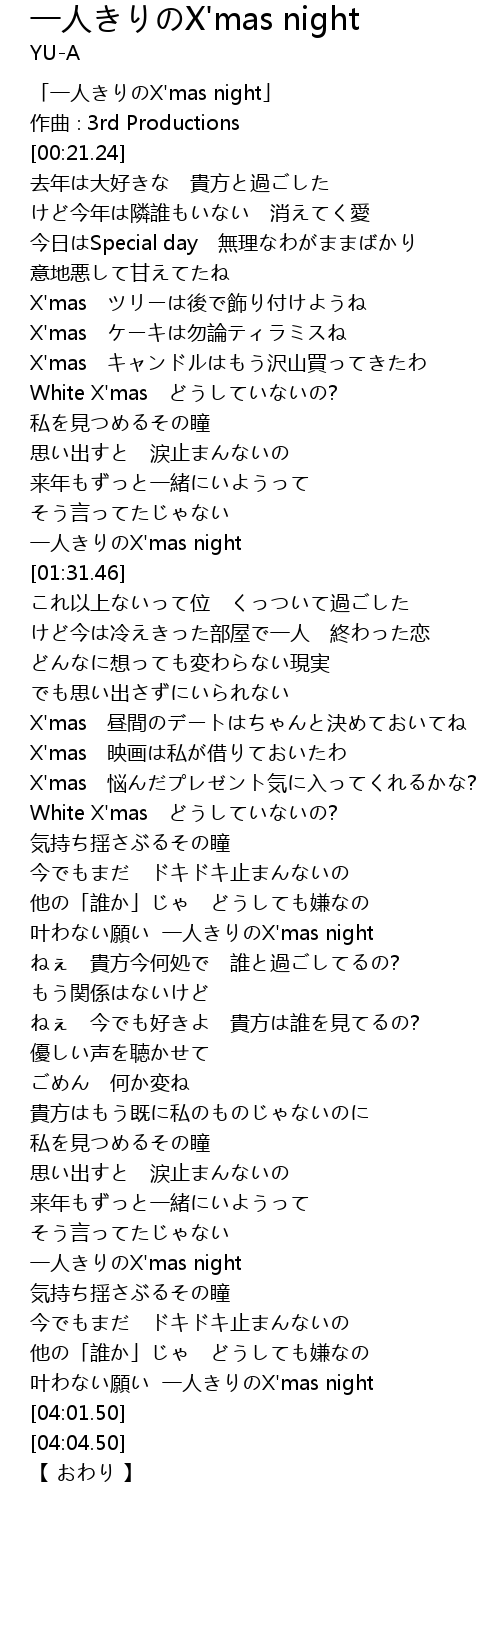 一人きりのX'mas night
YU-A
「一人きりのX'mas night」
作曲 : 3rd Productions
[00:21.24]
去年は大好きな　貴方と過ごした
けど今年は隣誰もいない　消えてく愛
今日はSpecial day　無理なわがままばかり
意地悪して甘えてたね
X'mas　ツリーは後で飾り付けようね
X'mas　ケーキは勿論ティラミスね
X'mas　キャンドルはもう沢山買ってきたわ
White X'mas　どうしていないの?
私を見つめるその瞳
思い出すと　涙止まんないの
来年もずっと一緒にいようって
そう言ってたじゃない
一人きりのX'mas night
[01:31.46]
これ以上ないって位　くっついて過ごした
けど今は冷えきった部屋で一人　終わった恋
どんなに想っても変わらない現実
でも思い出さずにいられない
X'mas　昼間のデートはちゃんと決めておいてね
X'mas　映画は私が借りておいたわ
X'mas　悩んだプレゼント気に入ってくれるかな?
White X'mas　どうしていないの?
気持ち揺さぶるその瞳
今でもまだ　ドキドキ止まんないの
他の「誰か」じゃ　どうしても嫌なの
叶わない願い  一人きりのX'mas night
ねぇ　貴方今何処で　誰と過ごしてるの?
もう関係はないけど
ねぇ　今でも好きよ　貴方は誰を見てるの?
優しい声を聴かせて
ごめん　何か変ね
貴方はもう既に私のものじゃないのに
私を見つめるその瞳
思い出すと　涙止まんないの
来年もずっと一緒にいようって
そう言ってたじゃない
一人きりのX'mas night
気持ち揺さぶるその瞳
今でもまだ　ドキドキ止まんないの
他の「誰か」じゃ　どうしても嫌なの
叶わない願い  一人きりのX'mas night
[04:01.50]
[04:04.50]
【 おわり 】